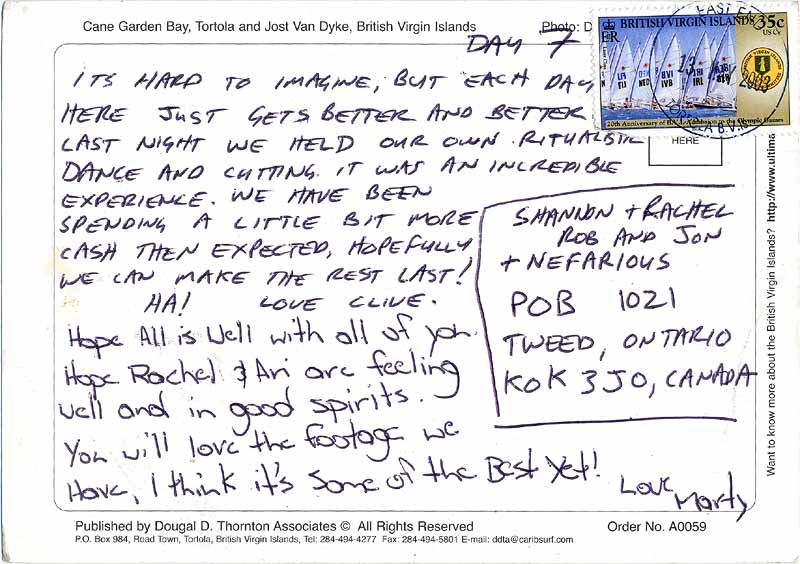 Cane Garden Bay, Tortola and Jost Van Dyke, British Virgin Islands
Photo: D
DAY 7
BRITISH VIRGIN ISLANDS 35c
US Cy
20th Anniversary of B.V.I. Admission to the Olympic Games
2003
HERE
ITS HARD TO IMAGINE, BUT EACH DAY
HERE JUST GETS BETTER AND BETTER
LAST NIGHT WE HELD OUR OWN RITUALISTIC
DANCE AND CUTTING. IT WAS AN INCREDIBLE
EXPERIENCE. WE HAVE BEEN
SPENDING A LITTLE BIT MORE
CASH THEN EXPECTED, HOPEFULLY
WE CAN MAKE THE REST LAST!
HA! LOVE CLIVE.
Hope All is Well with all of you.
Hope Rachel & Ari are feeling
well and in good spirits.
You will love the footage we
Have, I think it's some of the Best Yet!
Love
Marty
SHANNON + RACHEL
ROB AND JON
+ NEFARIOUS
POB 1021
TWEED, ONTARIO
K0K 3J0, CANADA
Want to know more about the British Virgin Islands? http://www.ultima
Published by Dougal D. Thornton Associates © All Rights Reserved
Order No. A0059
P.O. Box 984, Road Town, Tortola, British Virgin Islands, Tel: 284-494-4277 Fax: 284-494-5801 E-mail: ddta@caribsurf.com